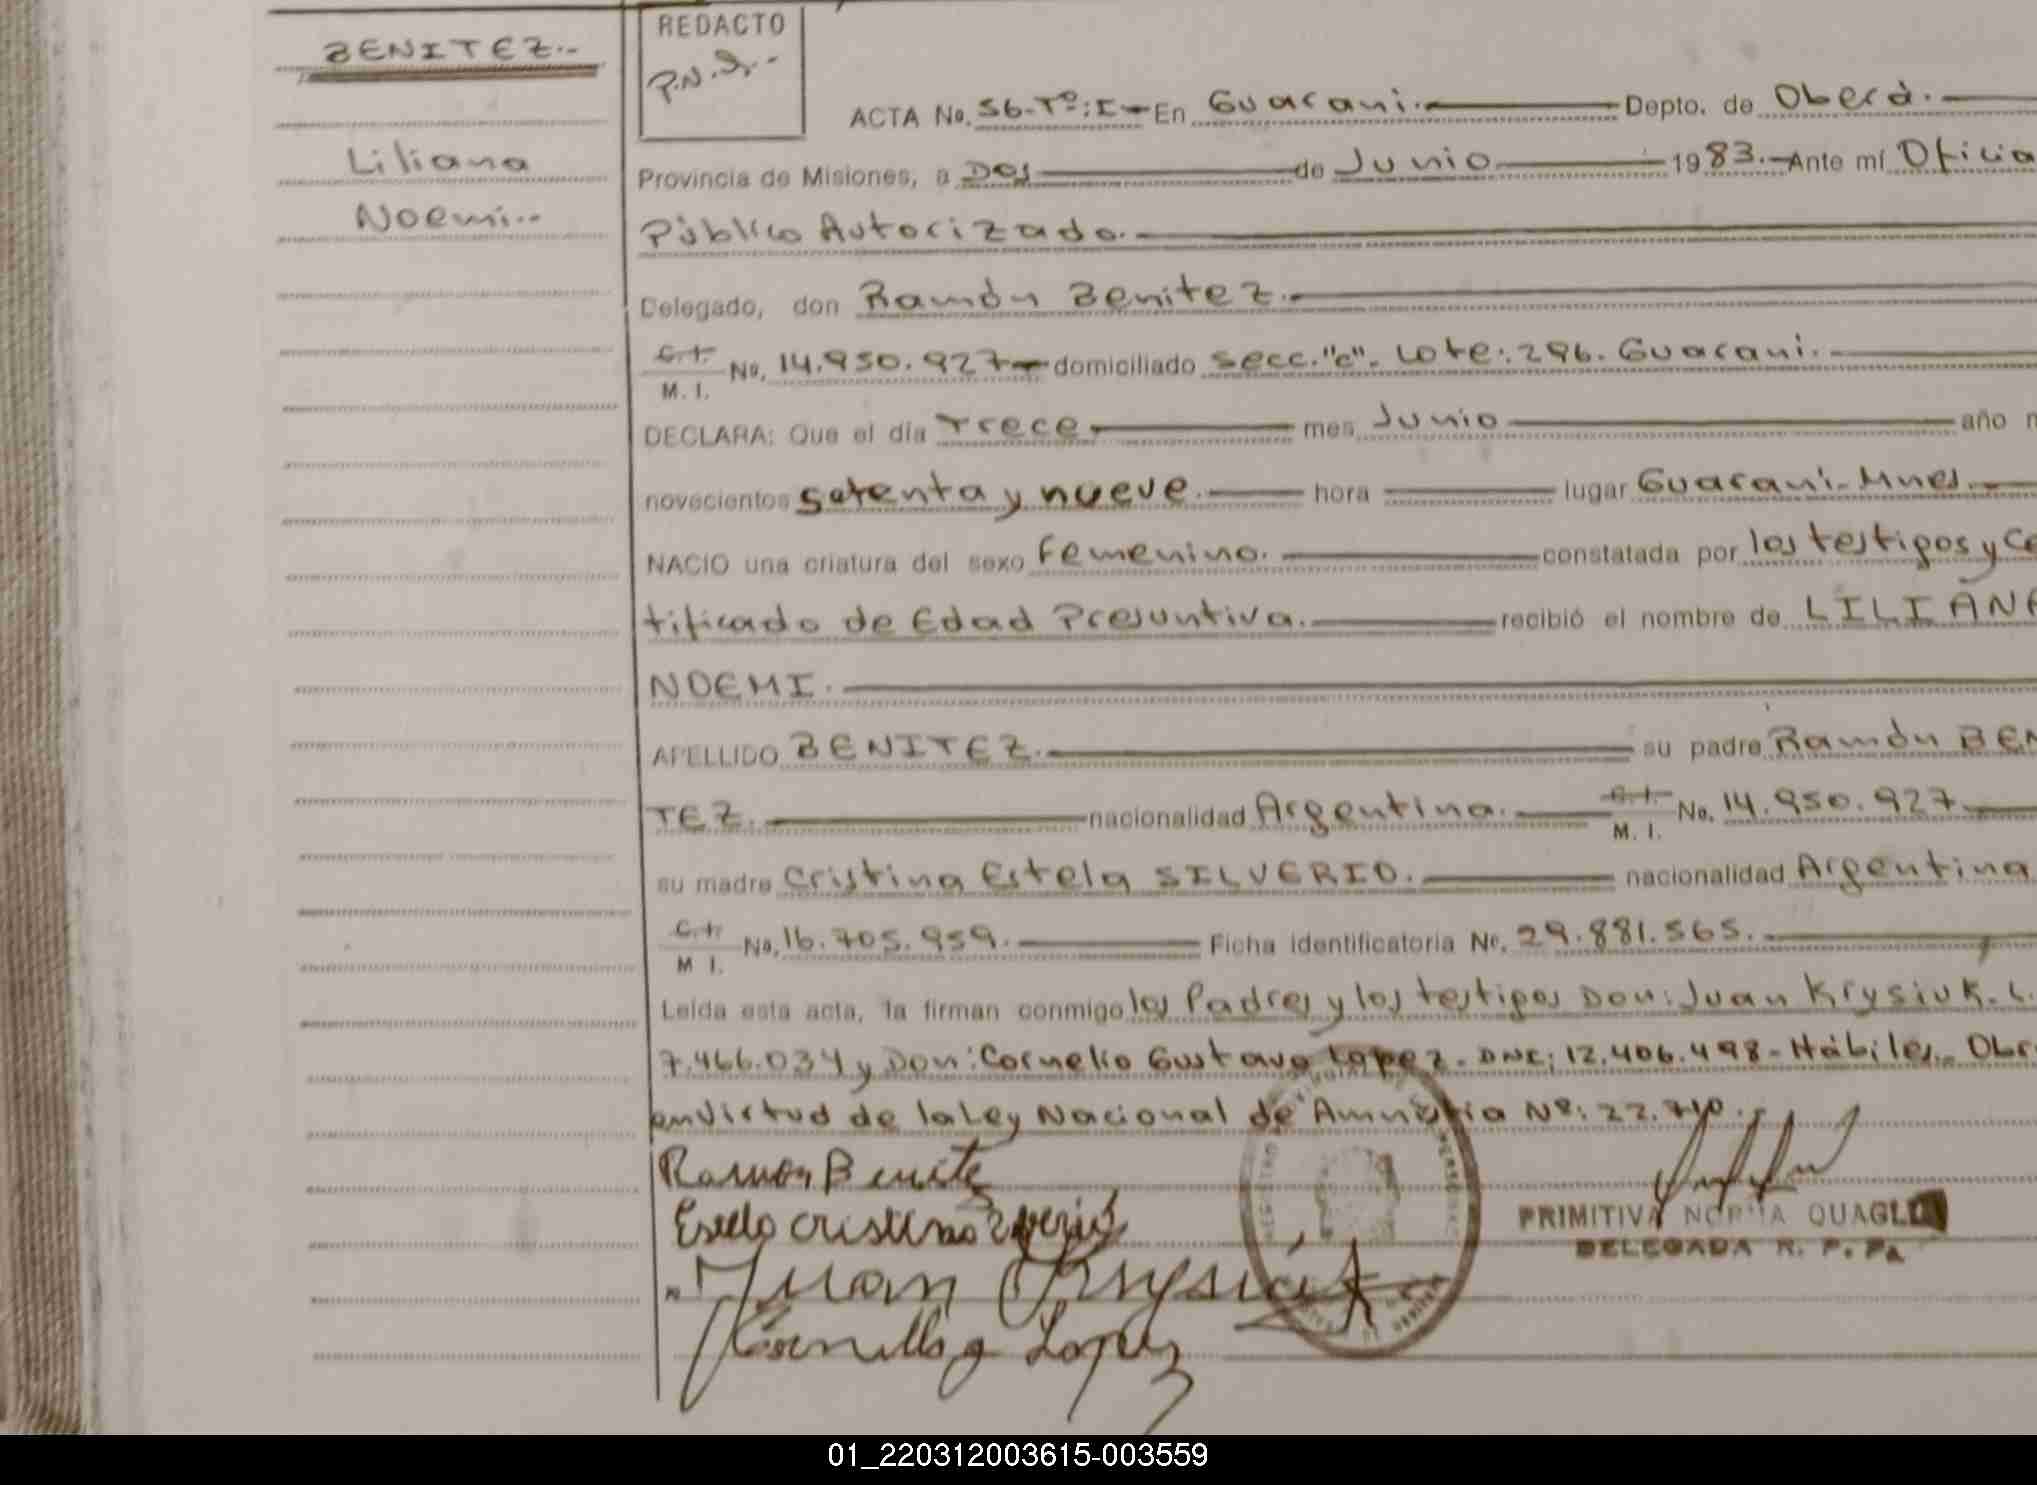 BENITEZ.-
Liliana
Noemi.-
REDACTO
P.N.
ACTA No. 56-Tº:I- En Guarani. Depto. de Oberá.
Provincia de Misiones, a Dos de Junio 1983.- Ante mí Oficia
Público Autorizado.
Delegado, don Ramón Benitez.
C.I. M. I. No. 14.950.927 domiciliado Secc."c". Lote: 296. Guarani.
DECLARA: Que el día Trece mes Junio año m
novecientos setenta y nueve. hora lugar Guarani-Mnes.
NACIO una criatura del sexo Femenino. constatada por los testigos y Ce
tificado de Edad Presuntiva. recibió el nombre de LILIANA
NOEMI.
APELLIDO BENITEZ. su padre Ramón BEN
TEZ. nacionalidad Argentina. C.I. M. I. No. 14.950.927
su madre Cristina Estela SILVERIO. nacionalidad Argentina
C.I. M I. No. 16.705.959. Ficha identificatoria No. 29.881.565.
Leída esta acta, la firman conmigo los Padres y los testigos Don: Juan Krysiuk. L.
7.466.034 y Don: Cornelio Gustavo Lopez. DNI: 12.406.498- Hábiles. Obr
en Virtud de la Ley Nacional de Amnistia Nº: 22.710.-
Ramon Benitez
Estela cristina
Juan Krysiuk
Lopez
PRIMITIVA NORMA QUAGLIA
DELEGADA R. P. Pa
01_220312003615-003559